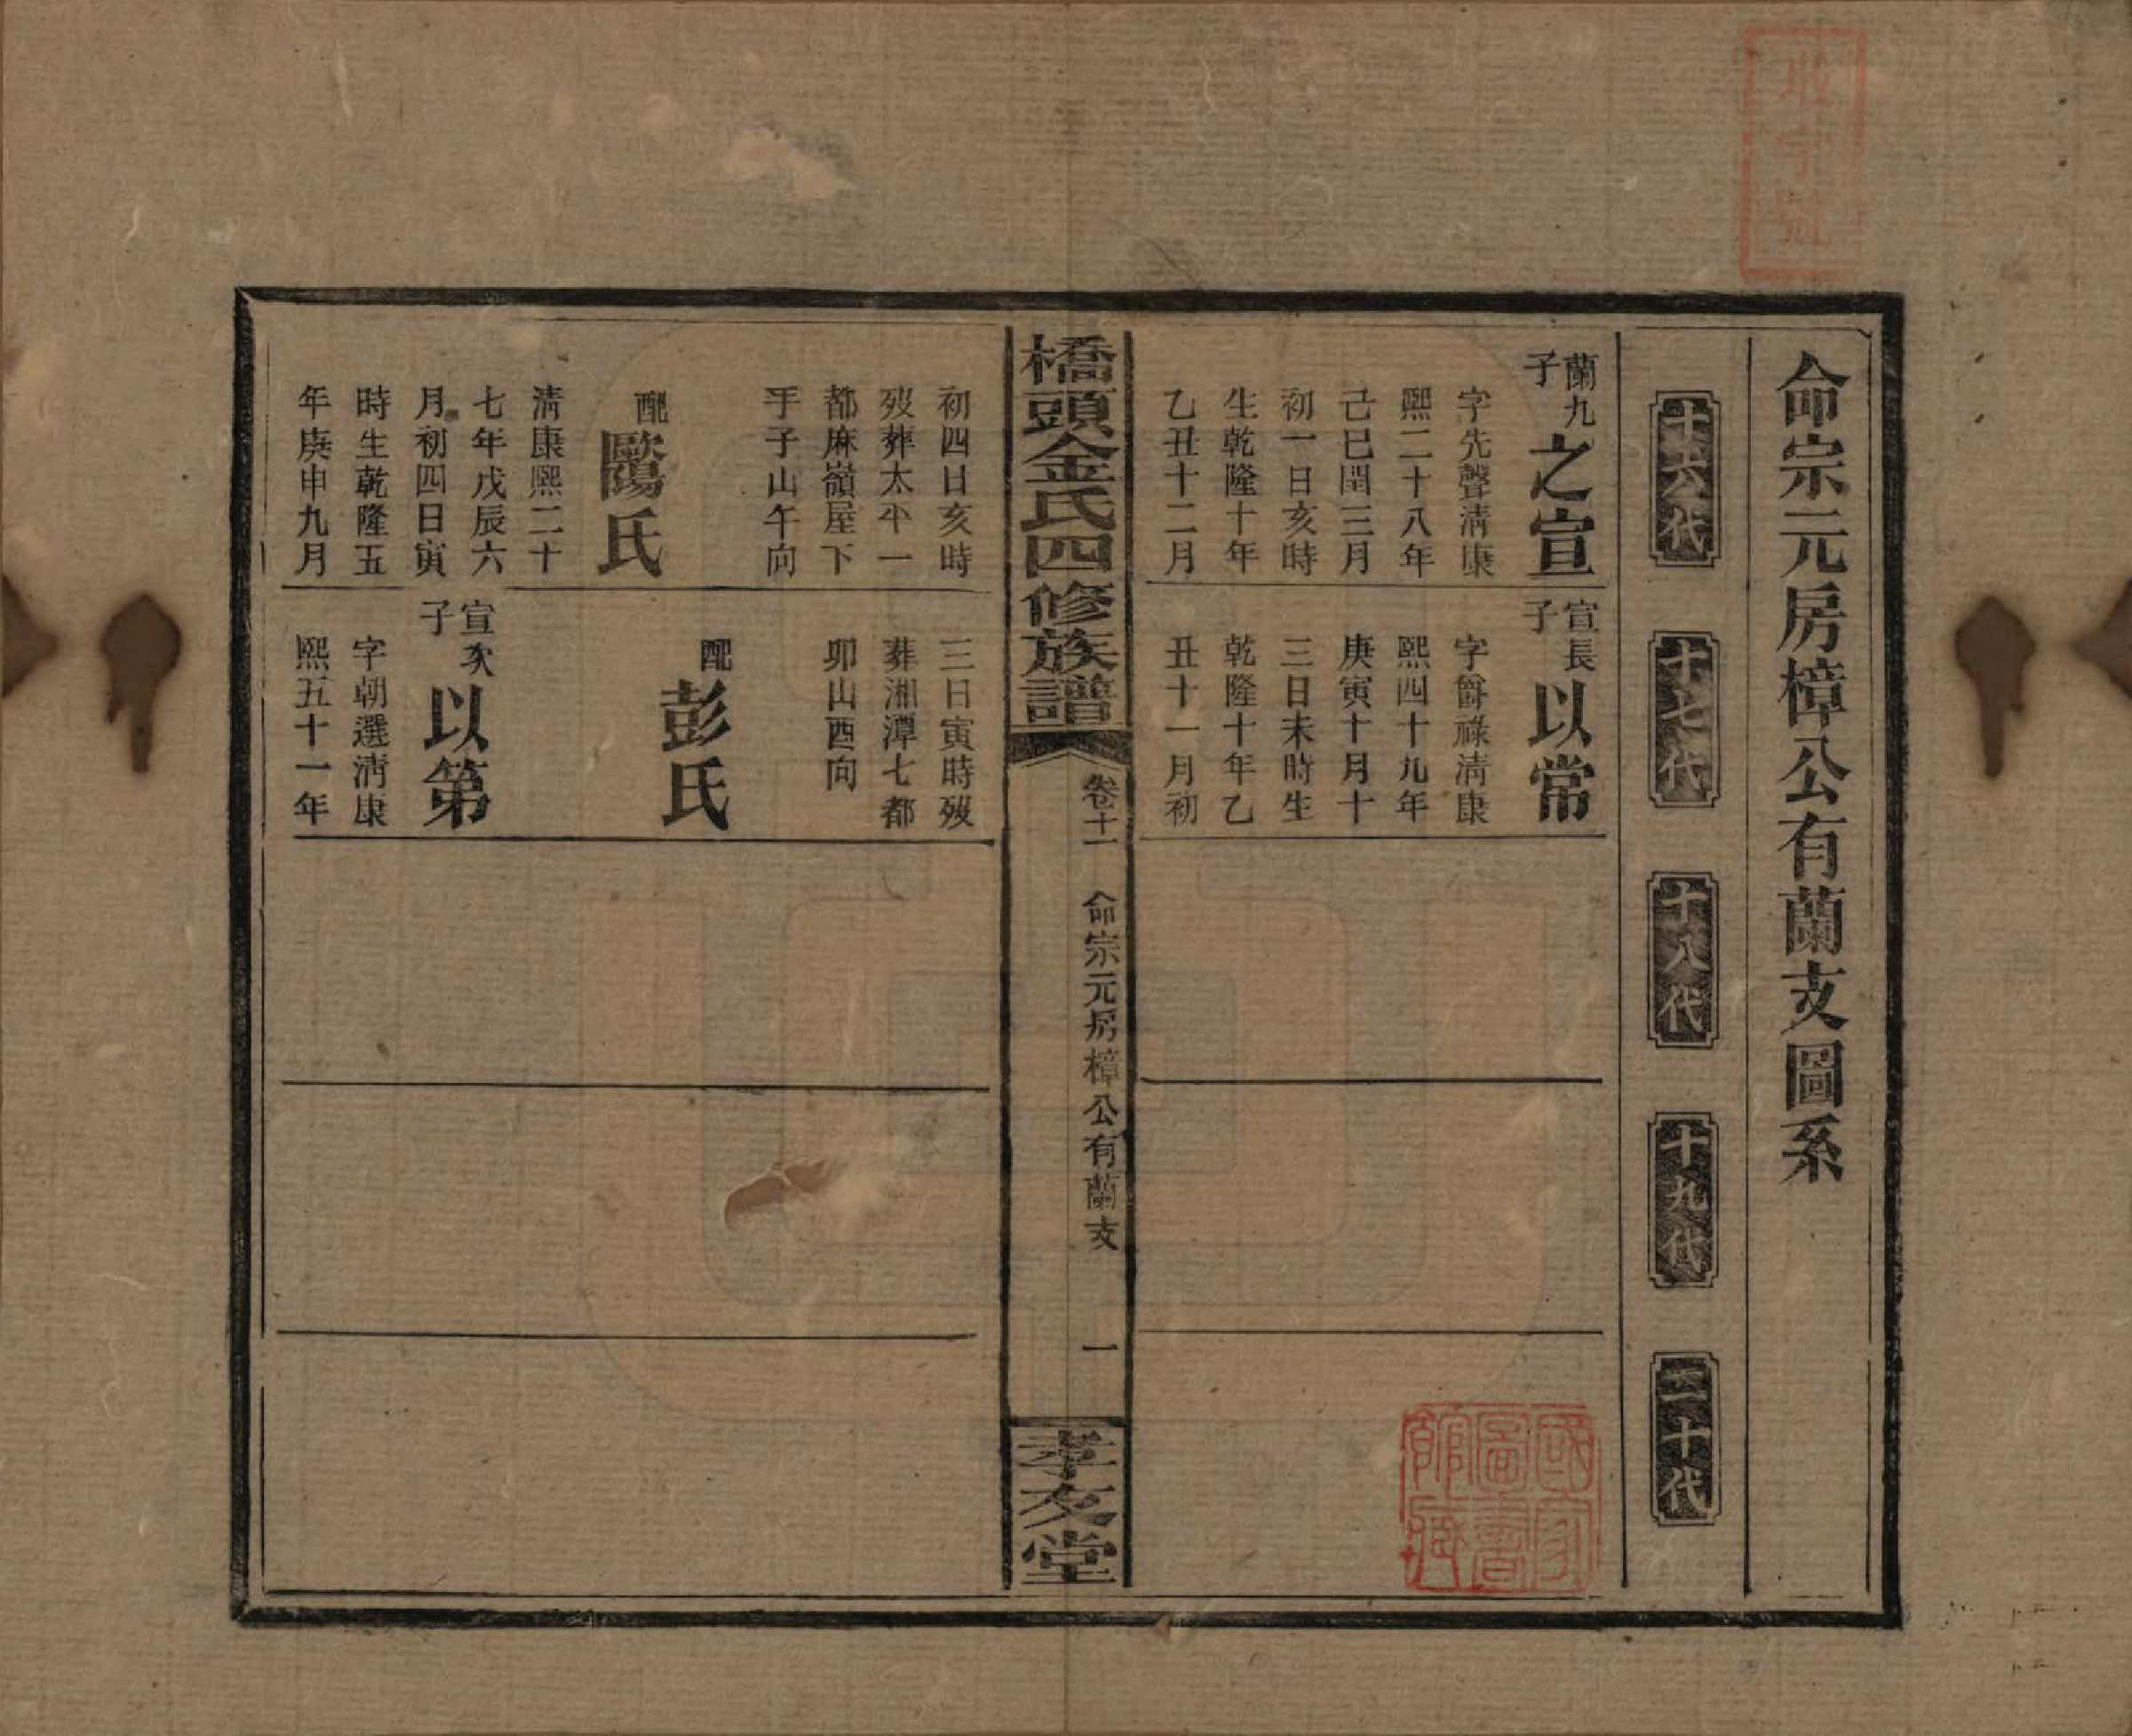 命宗元房樟公有蘭支圖系
十六代
十七代
十八代
十九代
二十代
蘭九
子
之宣
字先聲淸康
熙二十八年
己巳閏三月
初一日亥時
生乾隆十年
乙丑十二月
宣長
子
以常
字爵祿淸康
熙四十九年
庚寅十月十
三日未時生
乾隆十年乙
丑十一月初
橋頭金氏四修族譜
卷十一
命宗元房樟公有蘭支
一
孝友堂
初四日亥時
歿葬太平一
都麻嶺屋下
手子山午向
配
歐陽氏
淸康熙二十
七年戊辰六
月初四日寅
時生乾隆五
年庚申九月
三日寅時歿
葬湘潭七都
卯山酉向
配
彭氏
宣次
子
以第
字朝選淸康
熙五十一年
國家
圖書
館藏